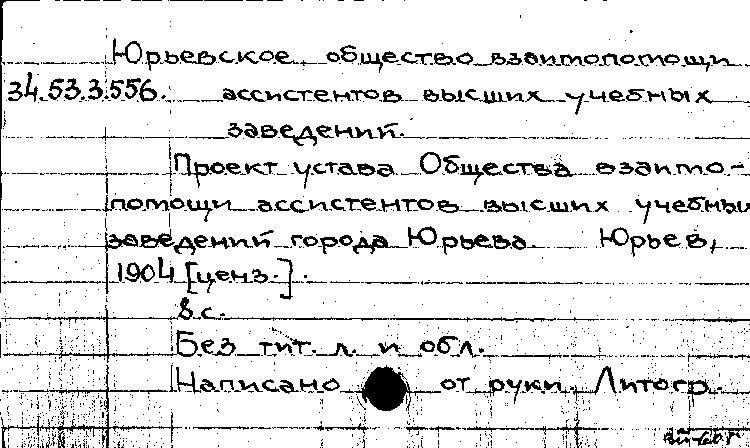 Юрьевское общество взаимопомощи
34.53.3.556. ассистентов высших учебных
заведений.
Проект устава Общества взаимо-
помощи ассистентов высших учебны
заведений города Юрьева. Юрьев,
1904 [ценз.].
8 с.
Без тит. л. и обл.
Написано от руки. Литогр.